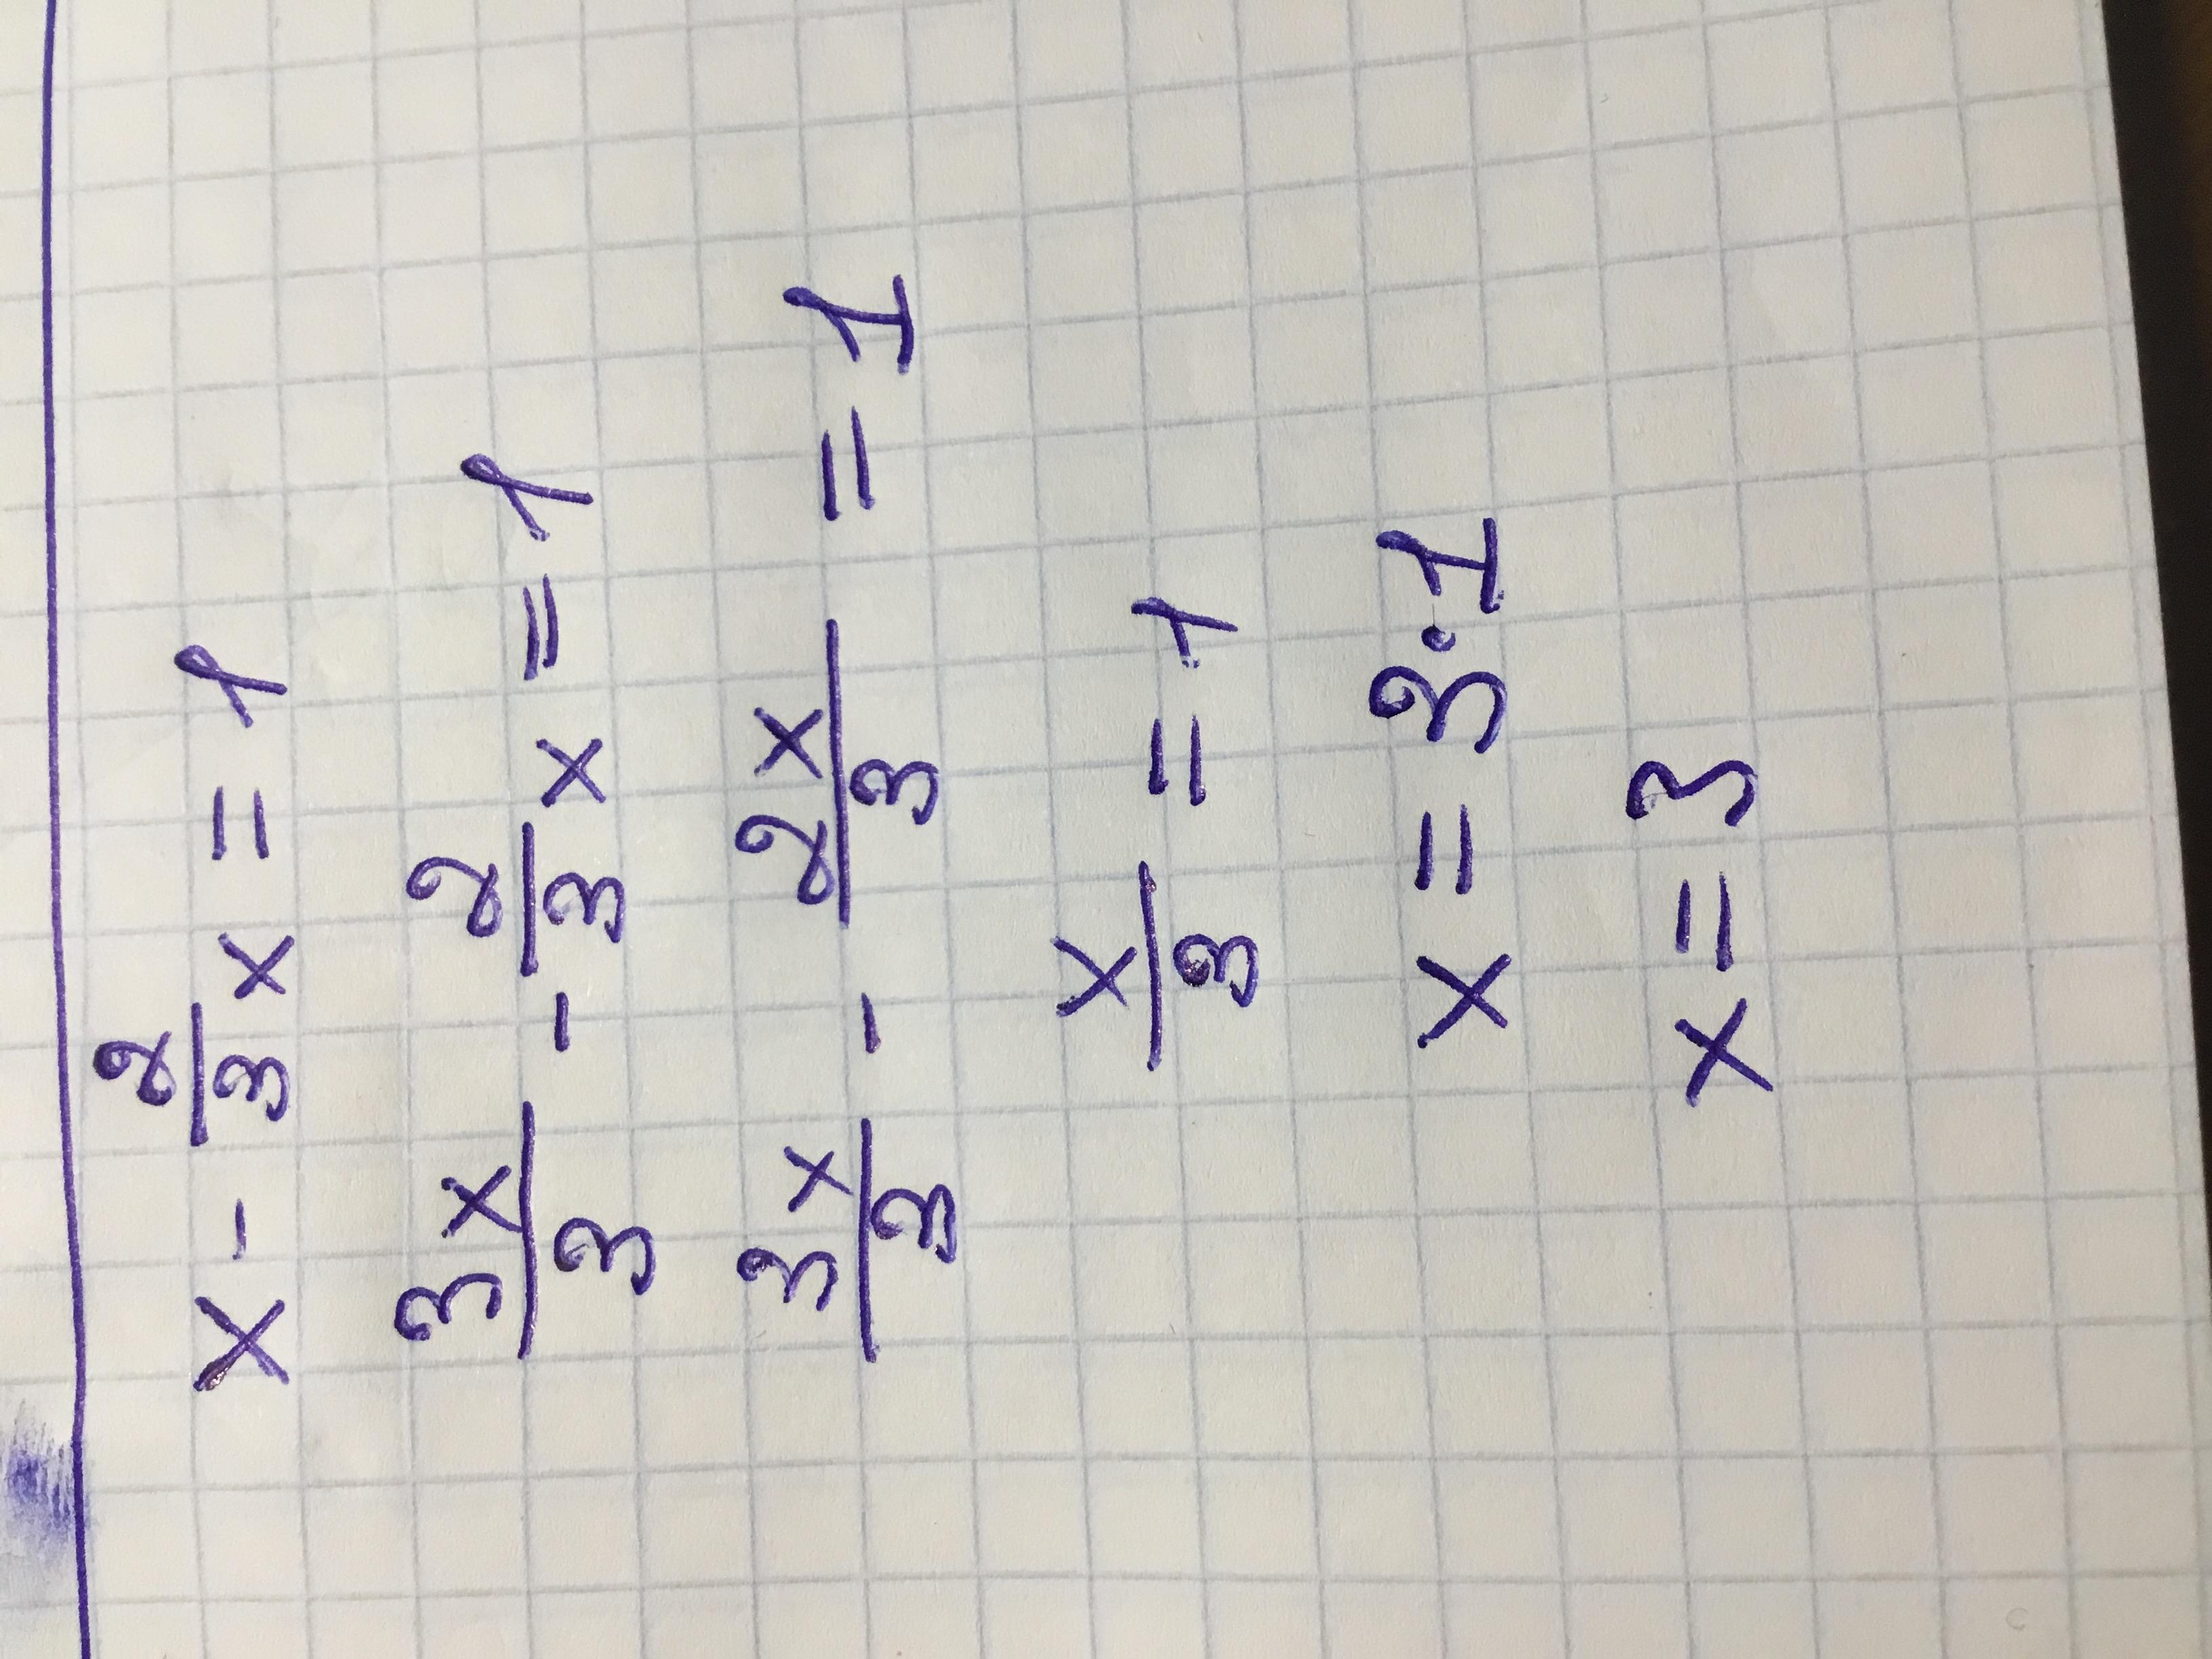 x - 2/3 x = 1
3x/3 - 2/3 x = 1
3x/3 - 2x/3 = 1
x/3 = 1
x = 3·1
x = 3